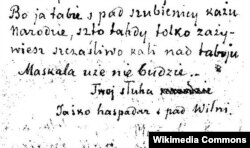 Bo ja tabie s pad szubienicy każu
Narodzie, szto tahdy tolko zaży-
wiesz szczaśliwo kali nad taboju
Maskala uże nie budzie..
Twoj słuha
Jaśko haspadar s pad Wilni.
Wikimedia Commons